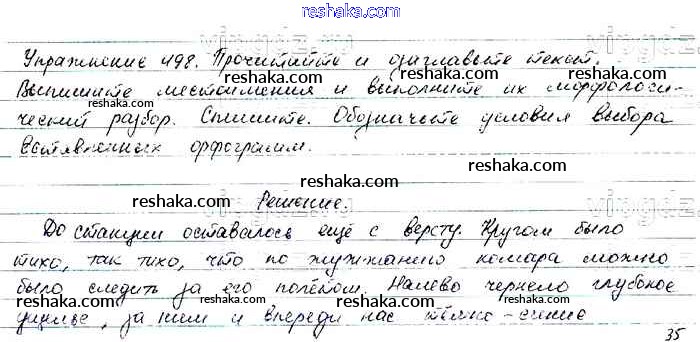 reshaka.com
Упражнение 498. Прочитайте и озаглавьте текст.
reshaka.com
Выпишите местоимения и выполните их морфологи-
ческий разбор. Спишите. Обозначьте условия выбора
reshaka.com
вставленных орфограмм.
reshaka.com
Решение.
До станции оставалось ещё с версту. Кругом было
reshaka.com
тихо, так тихо, что по жужжанию комара можно
было следить за его полётом. Налево чернело глубокое
reshaka.com
ущелье, за ним и впереди нас тёмно-синие
35
reshaka.com